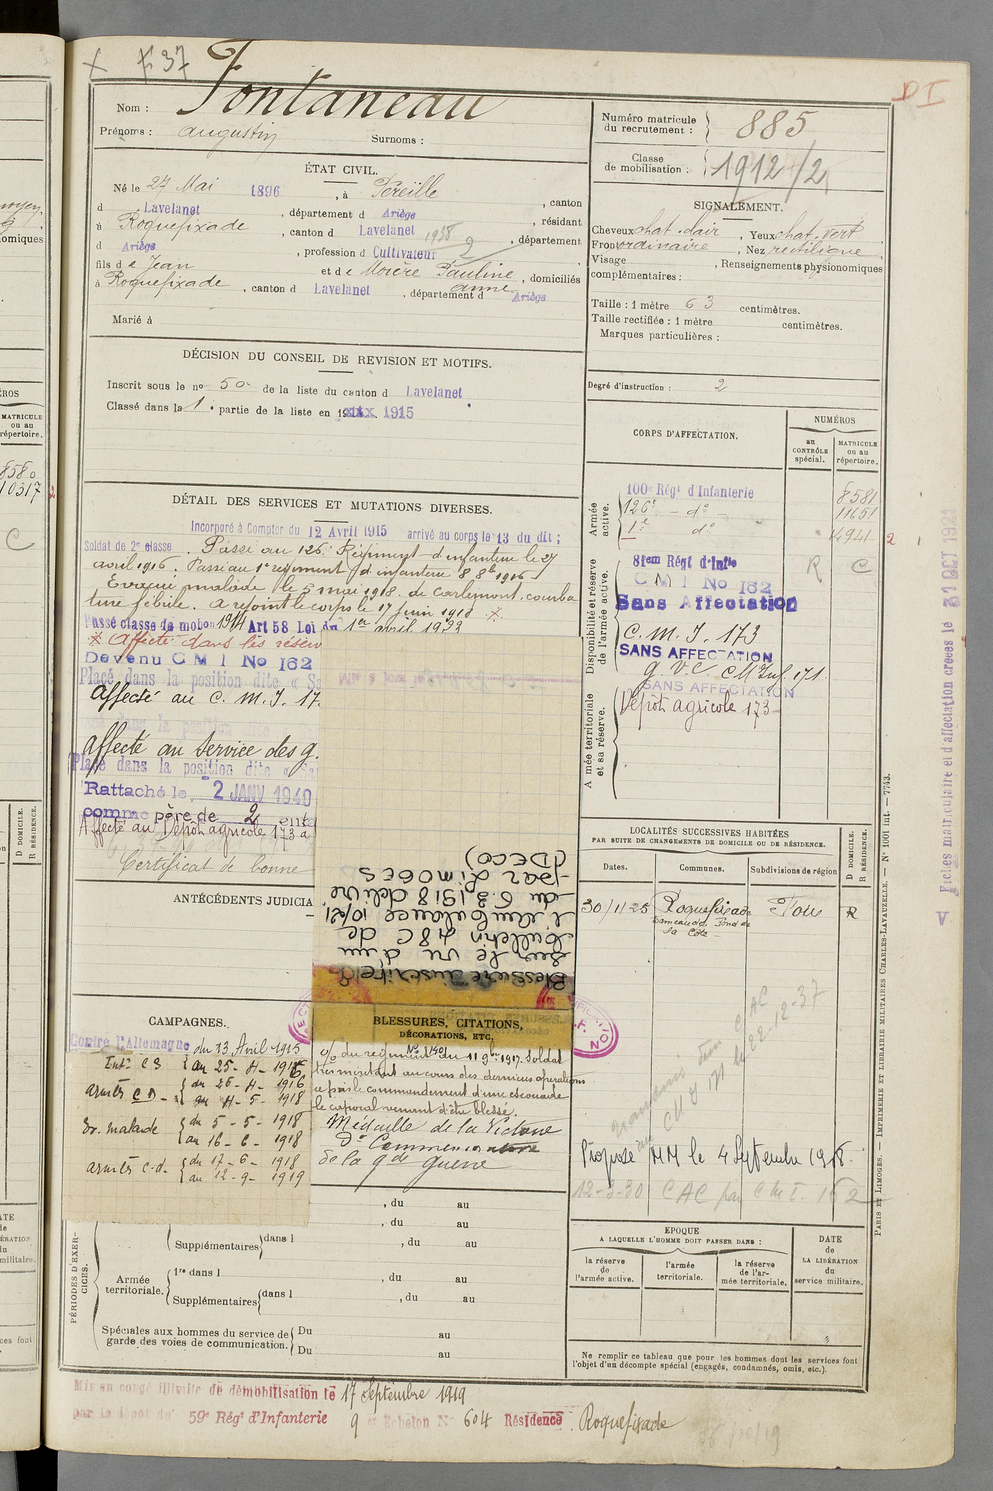 X F 37
DI
Nom : Fontaneau
Prénoms : Augustin Surnoms :
Numéro matricule du recrutement : 885
Classe de mobilisation : 1912/2
ÉTAT CIVIL.
Né le 27 Mai 1896, à Péreille, canton
d Lavelanet, département d Ariège, résidant
à Roquefixade, canton d Lavelanet 1938, département
d Ariège, profession d Cultivateur 2
fils de Jean et de Morère Pauline Anne, domiciliés
à Roquefixade, canton d Lavelanet, département d Ariège
Marié à
SIGNALEMENT.
Cheveux chat. clair, Yeux chat. vert
Front ordinaire, Nez rectiligne
Visage , Renseignements physionomiques
complémentaires :
Taille : 1 mètre 63 centimètres.
Taille rectifiée : 1 mètre centimètres.
Marques particulières :
DÉCISION DU CONSEIL DE REVISION ET MOTIFS.
Inscrit sous le no 50 de la liste du canton d Lavelanet
Classé dans la 1e partie de la liste en 1915
Degré d'instruction : 2
CORPS D'AFFECTATION.
NUMÉROS
au CONTRÔLE spécial.
MATRICULE ou au répertoire.
Armée active.
100e Régt d'Infanterie 8581
126e do 11651
1er do 14941 2
Disponibilité et réserve de l'armée active.
Régt d'Infie R C
C M I No 162
Sans Affectation
C. M. I. 173
SANS AFFECTATION
G. V. C. CM Inf. 171
SANS AFFECTATION
Armée territoriale et sa réserve.
Dépôt agricole 173
DÉTAIL DES SERVICES ET MUTATIONS DIVERSES.
Incorporé à Compter du 12 Avril 1915 arrivé au corps le 13 du dit ;
Soldat de 2e classe. Passé au 126e Régiment d'infanterie le 27
avril 1916. Passé au 1er régiment d'infanterie 8 8bre 1916
Evacué malade le 5 mai 1918. de Carlemont, courba
ture fébrile. A rejoint le corps le 17 juin 1918 *.
Passé classe de mobon 1914 Art 58 Loi du 1er avril 1923
* Affecté dans les réserv
Devenu C M I No 162
Placé dans la position dite « Sa
Affecté au C. M. I. 17
Affecté au Service des g.
Placé dans la position dite « Sa
Rattaché le 2 JANV 1940
comme père de 2 enfa
Affecté au Dépôt agricole 173 a
Certificat de bonne
ANTÉCÉDENTS JUDICIA
Blessure inscrite
sur le vu d'un
bulletin 48C de
l'ambulance 10/21
du 6.8.1918 délivré
par LIMOGES
(DECO)
LOCALITÉS SUCCESSIVES HABITÉES
PAR SUITE DE CHANGEMENTS DE DOMICILE OU DE RÉSIDENCE.
Dates. Communes. Subdivisions de région
D DOMICILE.
R RÉSIDENCE.
30/11/25 Roquefixade Foix R
CAMPAGNES.
Contre l'Allemagne du 13 Avril 1915
Intr CS au 25-4-1916
Armées CD du 26-4-1916
au 4-5-1918
Ev. malade du 5-5-1918
au 16-6-1918
armées c.d. du 17-6-1918
au 12-9-1919
BLESSURES, CITATIONS,
DÉCORATIONS, ETC.
o/ du régiment No 1401 du 11 9bre 1917. Soldat
très méritant au cours des dernières opérations
a pris le commandement d'une escouade
le caporal venant d'être blessé.
Médaille de la Victoire
do Commémorative
de la gde guerre
22-12-37
Proposé MM le 4 Septembre 1958.
12-3-30 CAC par C M I 162
PÉRIODES D'EXERCICES.
, du au
, du au
Supplémentaires dans l , du au
Armée territoriale.
1re dans l , du au
Supplémentaires dans l , du au
Spéciales aux hommes du service de
garde des voies de communication.
Du au
Du au
EPOQUE
A LAQUELLE L'HOMME DOIT PASSER DANS :
la réserve de l'armée active.
l'armée territoriale.
la réserve de l'armée territoriale.
DATE de LA LIBÉRATION du service militaire.
Ne remplir ce tableau que pour les hommes dont les services font
l'objet d'un décompte spécial (engagés, condamnés, omis, etc.).
Mis en congé illimité de démobilisation le 17 Septembre 1919
par le dépôt du 59e Régt d'Infanterie 9e Echelon No 604 Résidence Roquefixade
PARIS ET LIMOGES. — IMPRIMERIE ET LIBRAIRIE MILITAIRES CHARLES-LAVAUZELLE. — No 1001 int. — 7743.
Fiches matriculaire et d'affectation créées le 31 OCT 1921
V